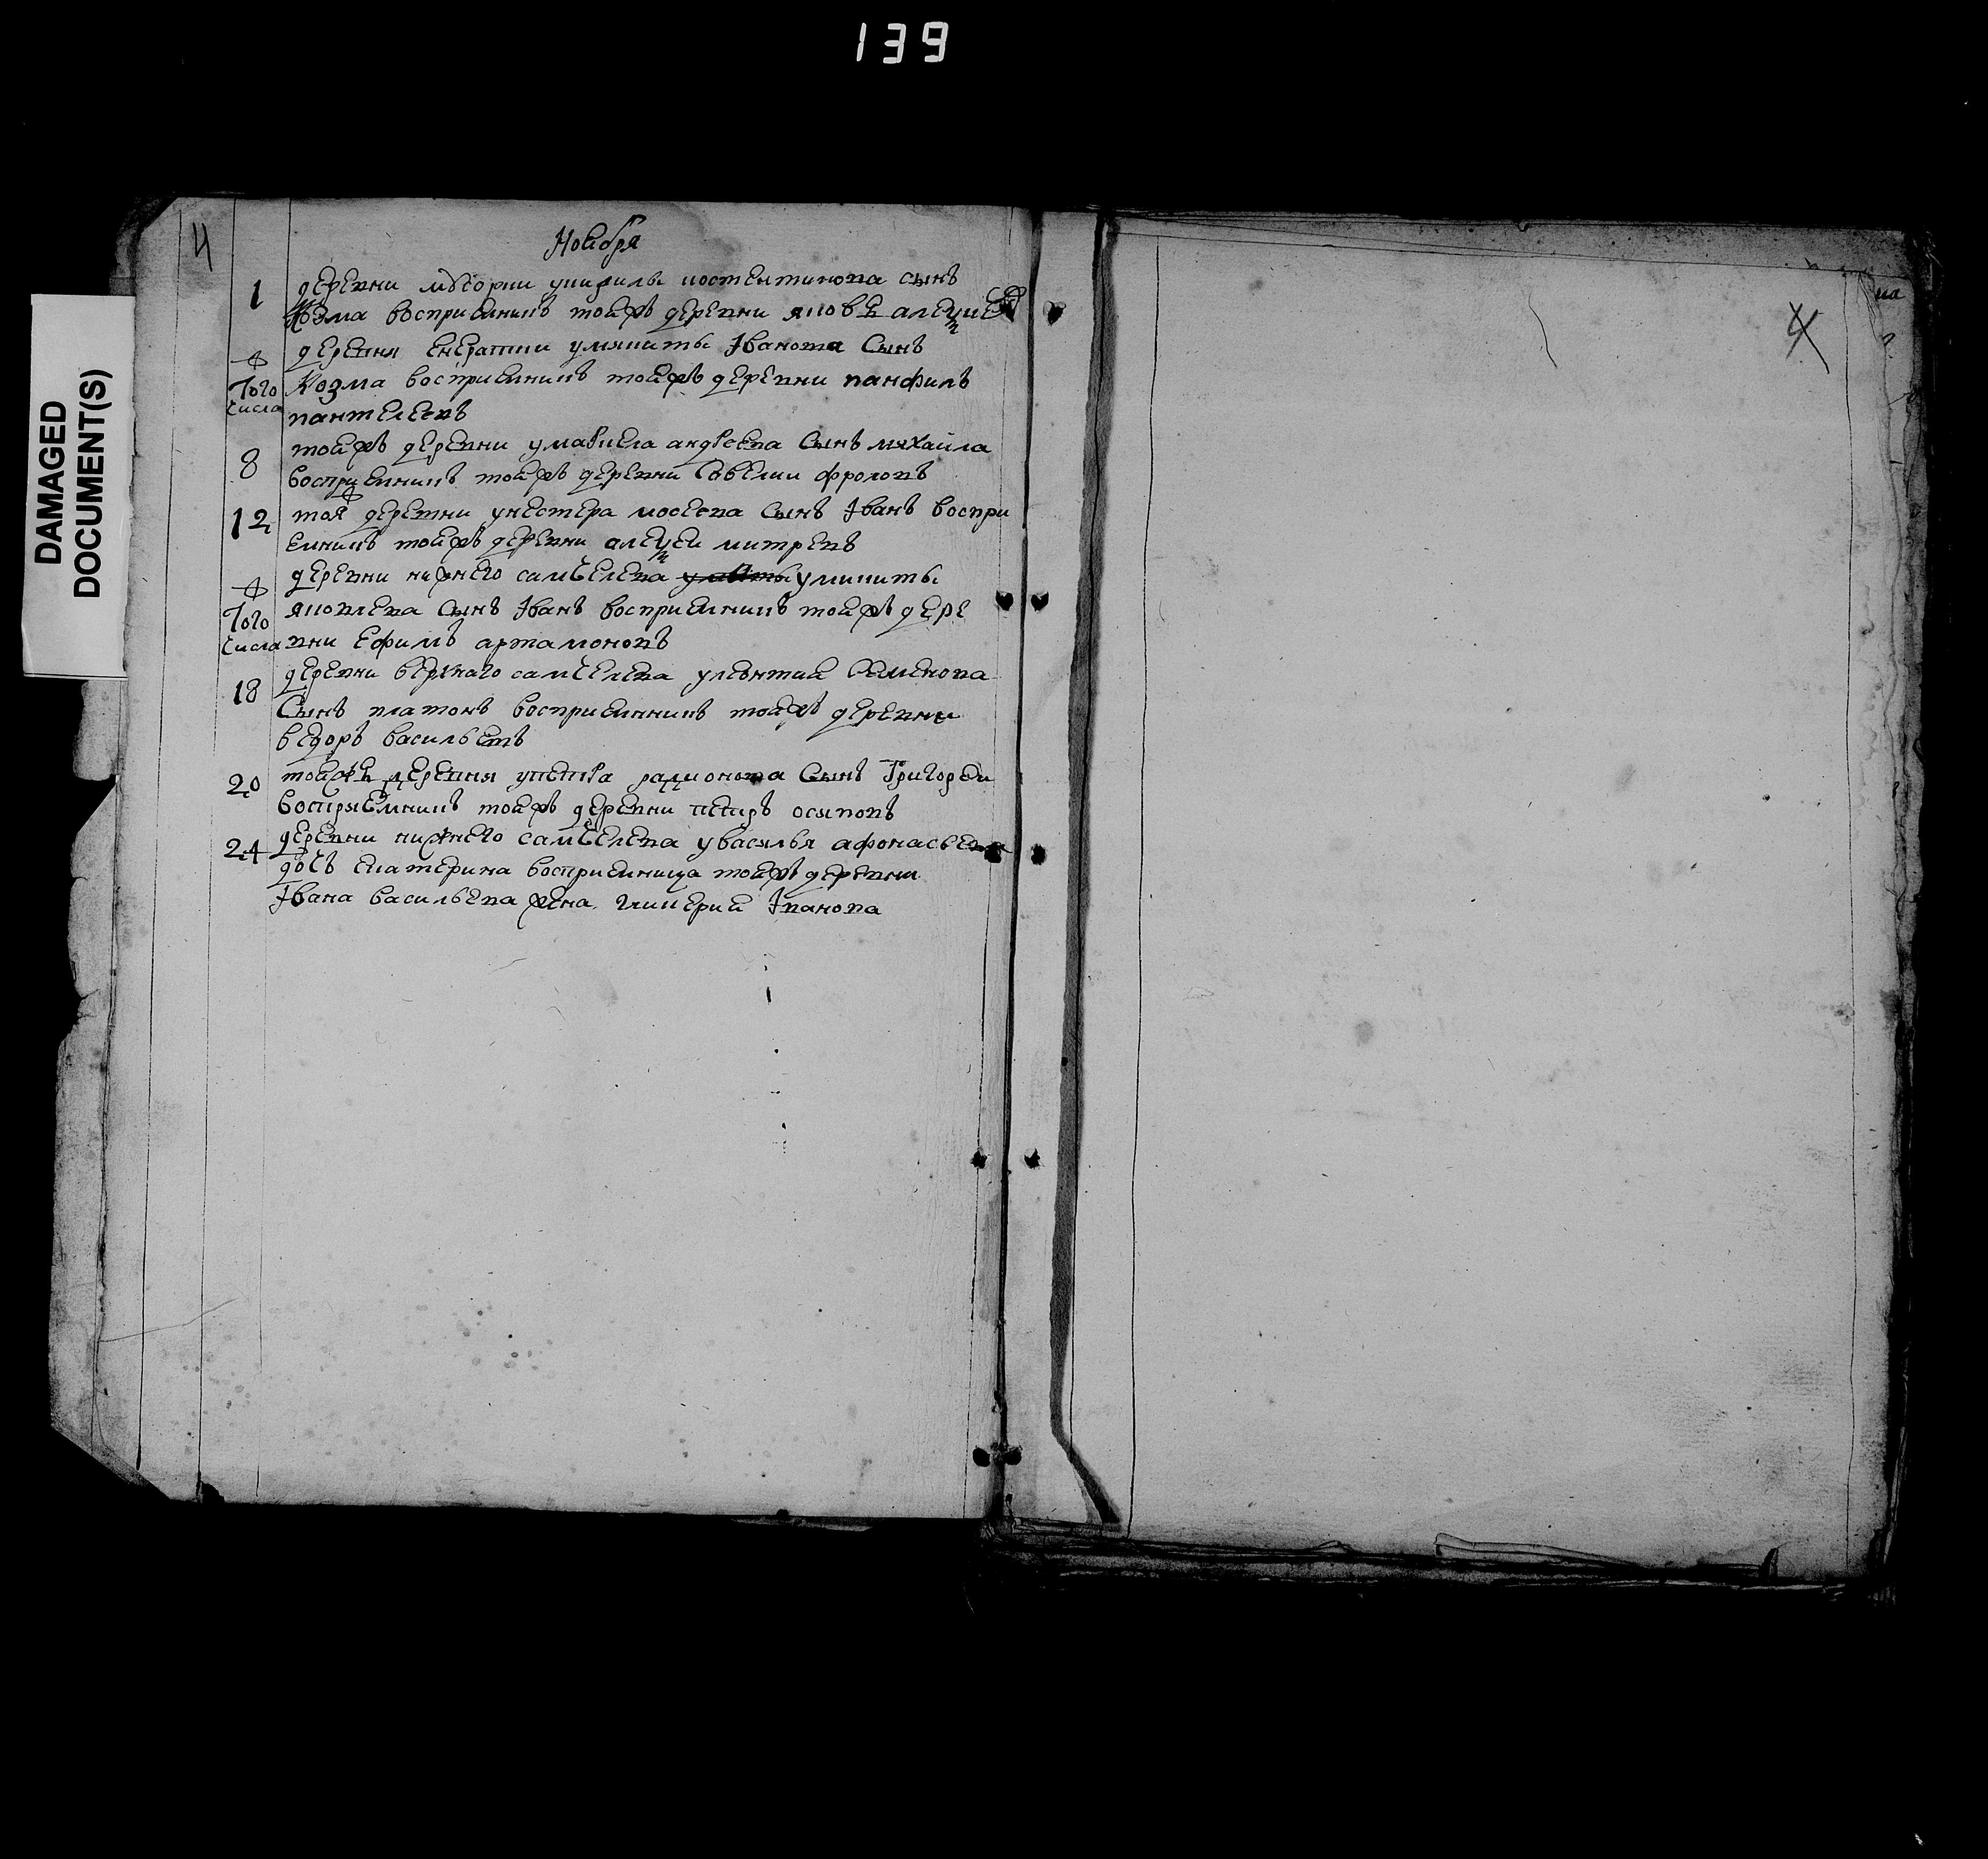 139
DAMAGED
DOCUMENT(S)
Ноября
1 деревни унифилы костентинова сынъ
Козма восприемникъ тойжъ деревни яковъ алеѯиевъ
деревни умикиты Iванова Сынъ
Того числа Козма восприемникъ тойжъ деревни панфилъ
пантелеевъ
8 тойжъ деревни умаркела андреева Сынъ михайла
восприемникъ тойжъ деревни Савелии фроловъ
12 тойжъ деревни унестера мосеева Сынъ Iванъ воспри
емникъ тойжъ деревни алеѯеи митревъ
деревни нижнего умикиты
Того числа яковлева Сынъ Iванъ восприемникъ тойжъ дере
вни ефимъ артамоновъ
18 деревни верхнаго улеонтия Семенова
Сынъ платонъ восприемникъ тойжъ деревни
ѳедоръ васильевъ
20 тойжъ деревни упетра радионова Сынъ Григореи
восприемникъ тойжъ деревни петръ осиповъ
24 деревни нижнего увасилья афонасьева
дочь екатерина восприемница тойжъ деревни
Iвана васильева жена гликерия Iванова
4